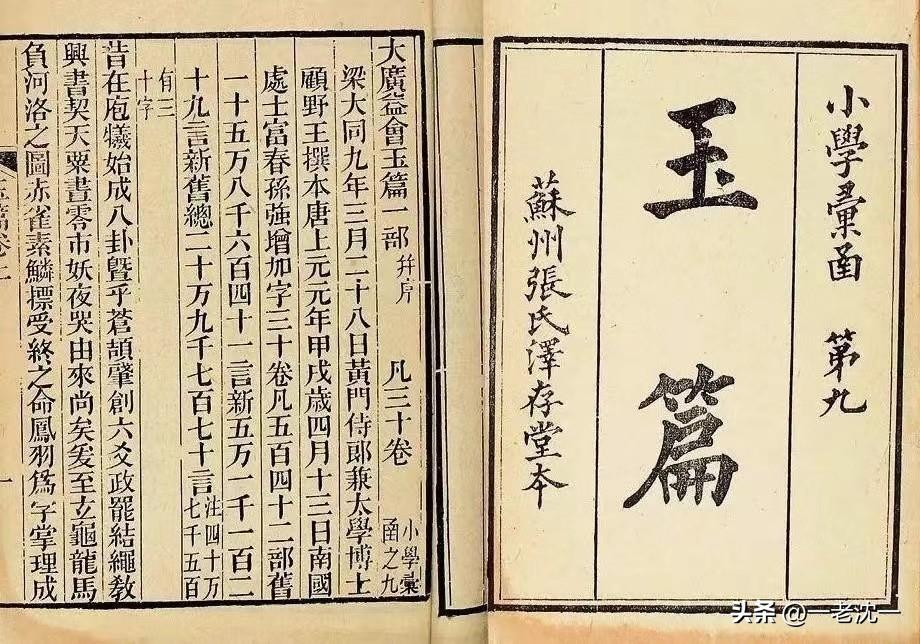 小學彙函 第九
玉篇
蘇州張氏澤存堂本
大廣益會玉篇一部 并序 凡三十卷 小學彙函之九
梁大同九年三月二十八日黃門侍郎兼太學博士
顧野王撰本唐上元元年甲戌歲四月十三日南國
處士富春孫強增加字三十卷凡五百四十二部舊
一十五万八千六百四十一言新五万一千一百二
十九言新舊總二十万九千七百七十言 注四十万七千五百
有三十字
昔在庖犧始成八卦暨乎蒼頡肇創六爻政罷結繩教
興書契天粟晝零市妖夜哭由來尚矣爰至玄龜龍馬
負河洛之圖赤雀素鱗標受終之命鳳羽為字掌理成
玉篇卷上
一
头条 @一老沈一